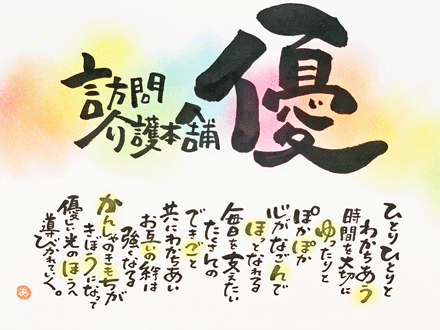 訪問
介護本舗
優
ひとりひとりと
わかちあう
時間を大切に
ゆったりと
ぽかぽか
心がなごんで
ほっとなれる
毎日を支えたい
たくさんの
できごと
共にわかちあい
お互いの絆は
強くなる
かんしゃのきもちが
きぼうになって
優しい光のほうへ
導びかれていく。
あ